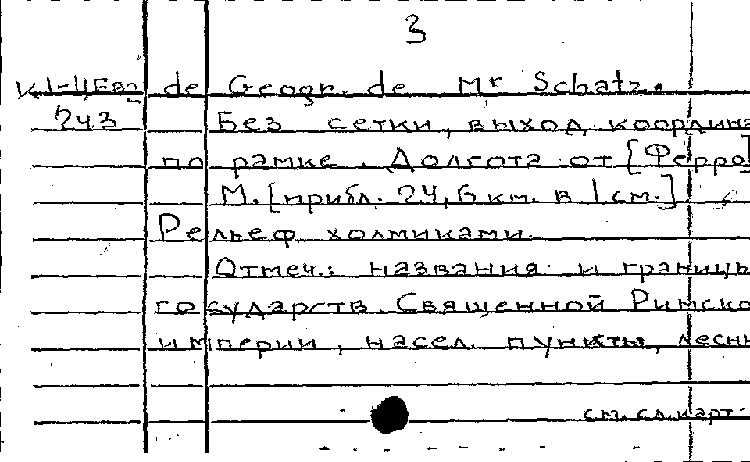 3
К1-ЦЕвр de Geogr. de Mr Schatz.
243 Без сетки, выход координа
по рамке. Долгота от [Ферро]
М. [прибл. 24,6 км. в 1 см.]
Рельеф холмиками.
Отмеч.: названия и границы
государств Священной Римско
империи, насел. пункты, лесн
см. сл. карт.